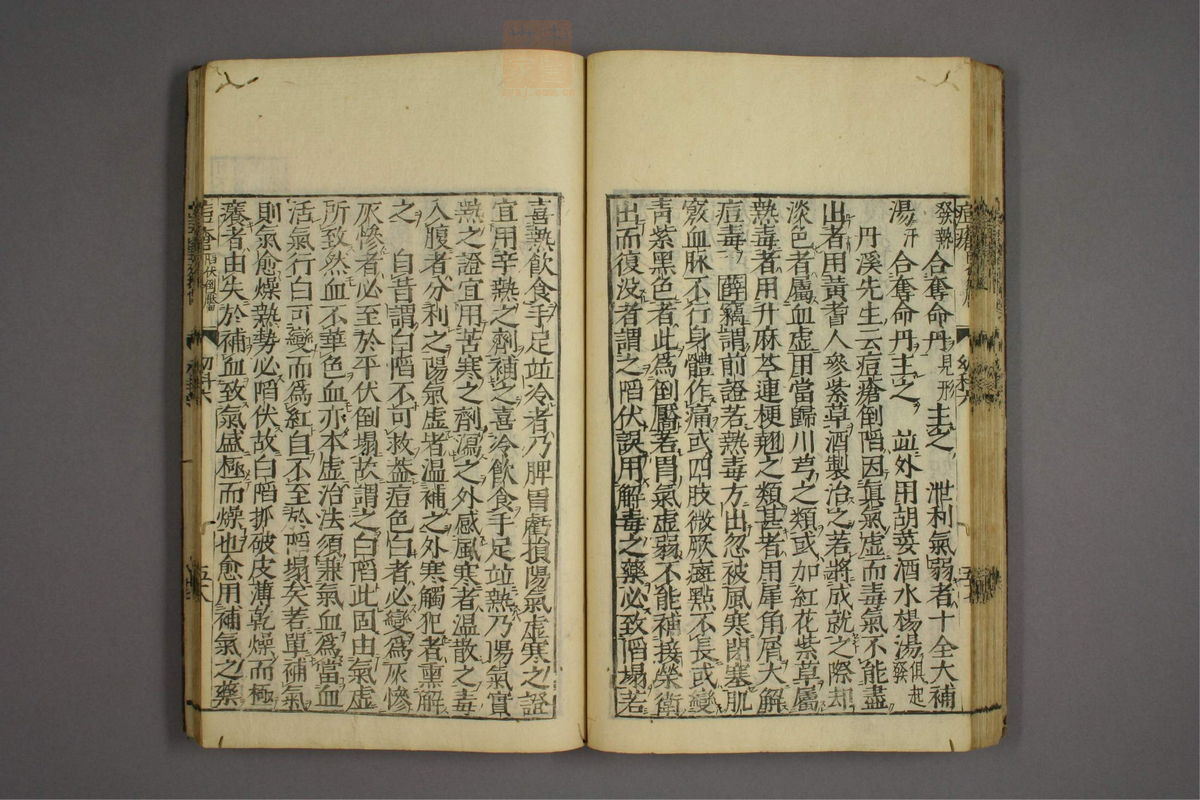 發熱合奪命丹見形主之　泄利氣弱者十全大補
湯汗合奪命丹主之　並外用胡荽酒水楊湯俱起發
丹溪先生云痘瘡倒陷因真氣虛而毒氣不能盡
出者用黃耆人參紫草酒製治之若將成就之際却
淡色者屬血虛用當歸川芎之類或加紅花紫草屬
熱毒者用升麻芩連梗翹之類甚者用犀角屑大解
痘毒　薛竊謂前證若熱毒方出忽被風寒閉塞肌
竅血脉不行身體作痛或四肢微厥斑點不長或變
青紫黑色者此為倒靨若胃氣虛弱不能補接榮衛
出而復没者謂之陷伏誤用解毒之藥必致陷塌若
喜熱飲食手足並冷者乃脾胃虧損陽氣虛寒之證
宜用辛熱之劑補之喜冷飲食手足並熱乃陽氣實
熱之證宜用苦寒之劑瀉之外感風寒者温散之毒
入腹者分利之陽氣虛者温補之外寒觸犯者熏解
之　自昔謂白陷不可救蓋痘色白者必變為灰慘
灰慘者必至於平伏倒塌故謂之白陷此固由氣虛
所致然血不華色血亦本虛治法須兼氣血為當血
活氣行白可變而為紅自不至於陷塌矣若單補氣
則氣愈燥熱勢必陷伏故白陷抓破皮薄乾燥而極
癢者由失於補血致氣盛極而燥也愈用補氣之藥